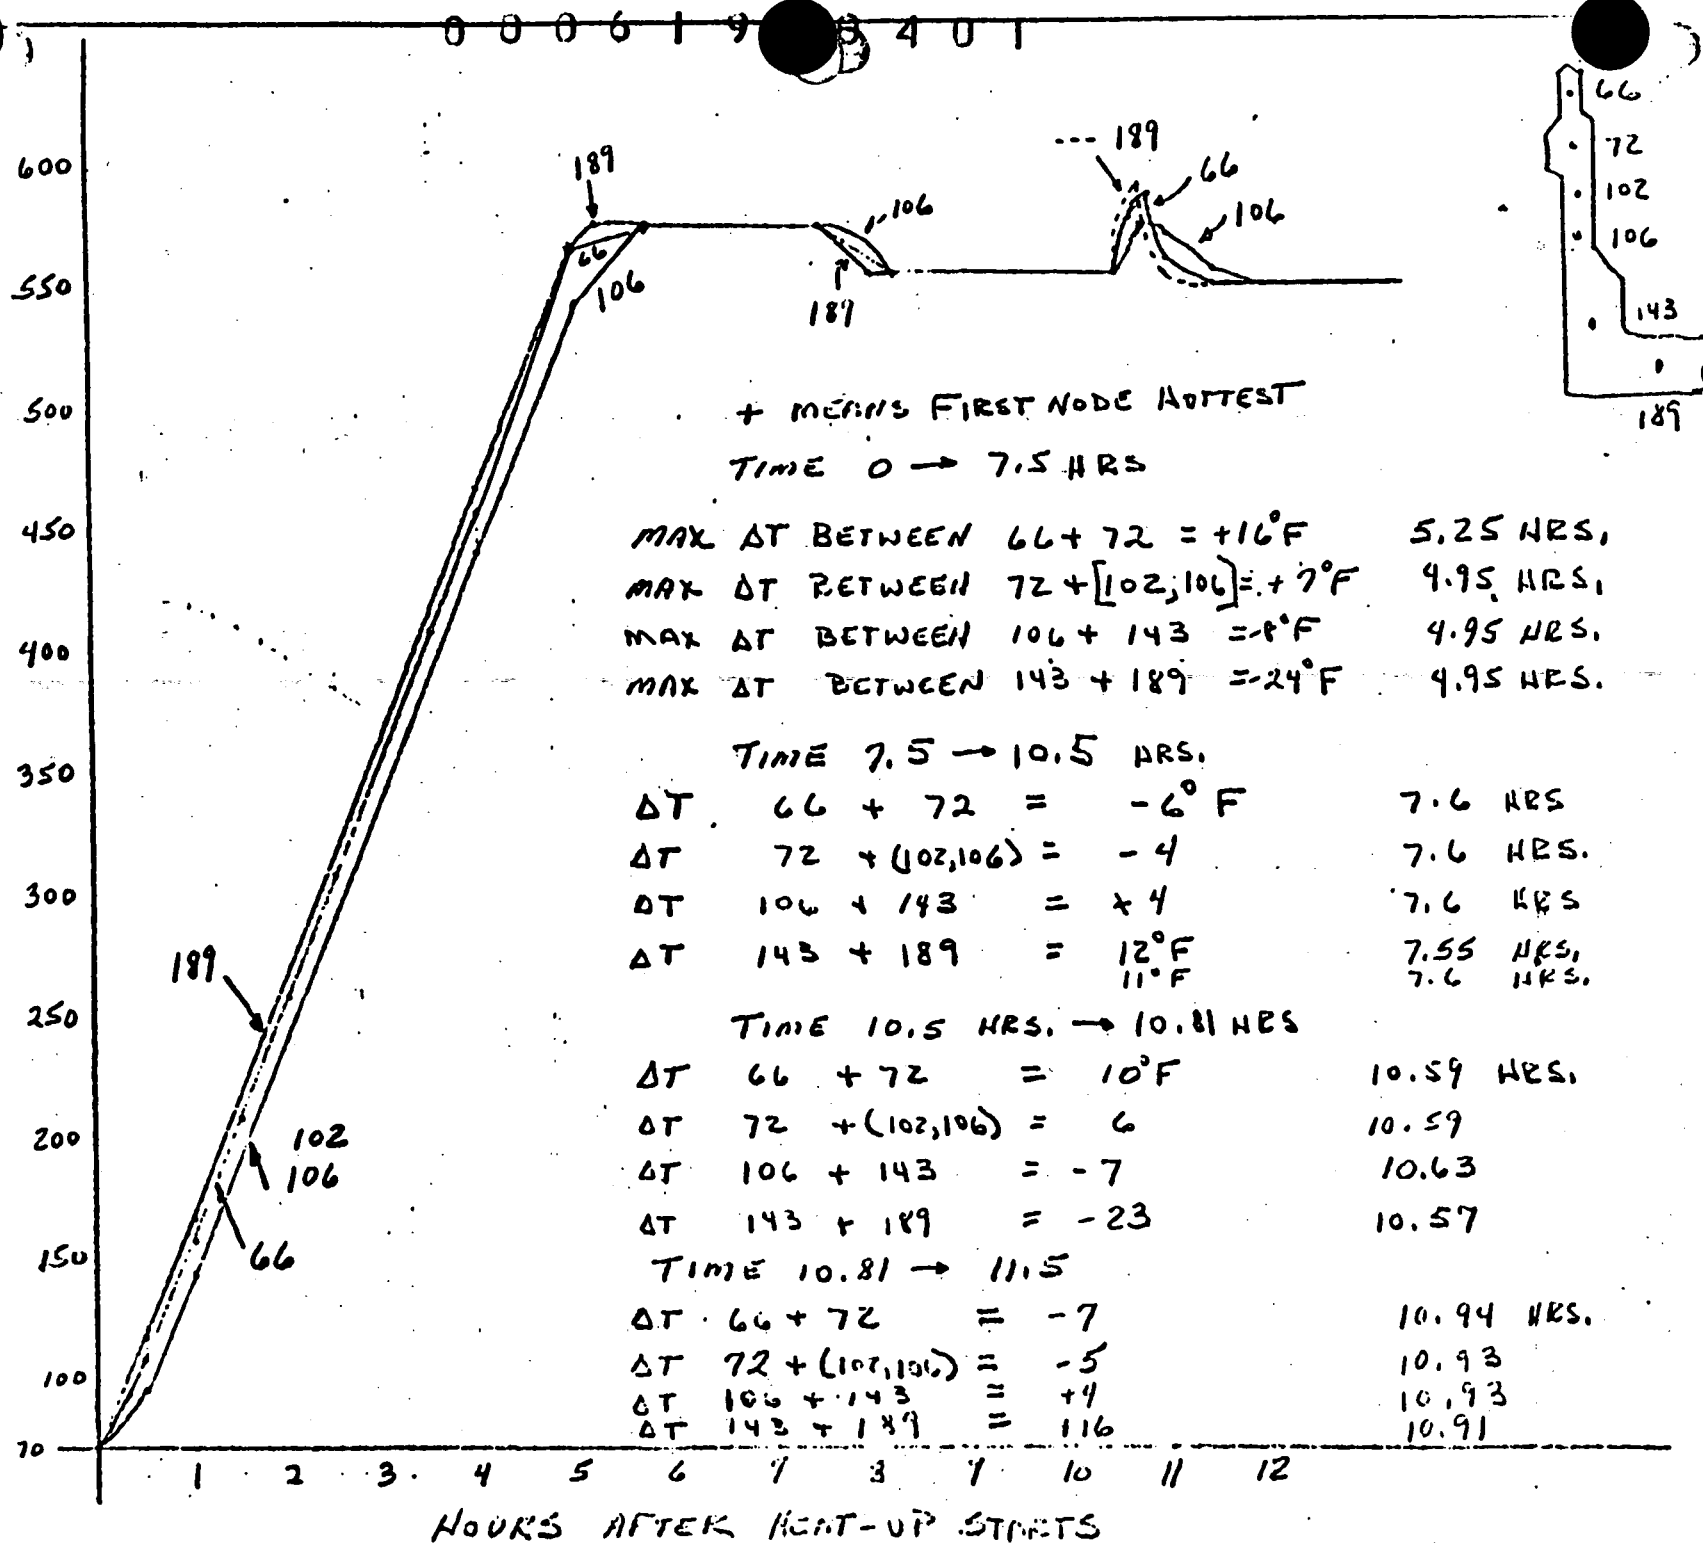 0 0 0 6 1 9 8 4 0 1
66
72
102
106
143
189
600
550
500
450
400
350
300
250
200
150
100
70
189
66
106
106
189
--- 189
66
106
189
102
106
66
+ MEANS FIRST NODE HOTTEST
TIME 0 → 7.5 HRS
MAX ΔT BETWEEN 66 + 72 = +16°F 5.25 HRS.
MAX ΔT BETWEEN 72 + [102,106] = +7°F 4.95 HRS.
MAX ΔT BETWEEN 106 + 143 = -8°F 4.95 HRS.
MAX ΔT BETWEEN 143 + 189 = -24°F 4.95 HRS.
TIME 7.5 → 10.5 HRS.
ΔT 66 + 72 = -6°F 7.6 HRS
ΔT 72 + (102,106) = -4 7.6 HRS.
ΔT 106 + 143 = +4 7.6 HRS
ΔT 143 + 189 = 12°F 7.55 HRS.
11°F 7.6 HRS.
TIME 10.5 HRS. → 10.81 HRS
ΔT 66 + 72 = 10°F 10.59 HRS.
ΔT 72 + (102,106) = 6 10.59
ΔT 106 + 143 = -7 10.63
ΔT 143 + 189 = -23 10.57
TIME 10.81 → 11.5
ΔT 66 + 72 = -7 10.94 HRS.
ΔT 72 + (102,106) = -5 10.93
ΔT 106 + 143 = +4 10.93
ΔT 143 + 189 = +16 10.91
1 2 3 4 5 6 7 8 9 10 11 12
HOURS AFTER HEAT-UP STARTS